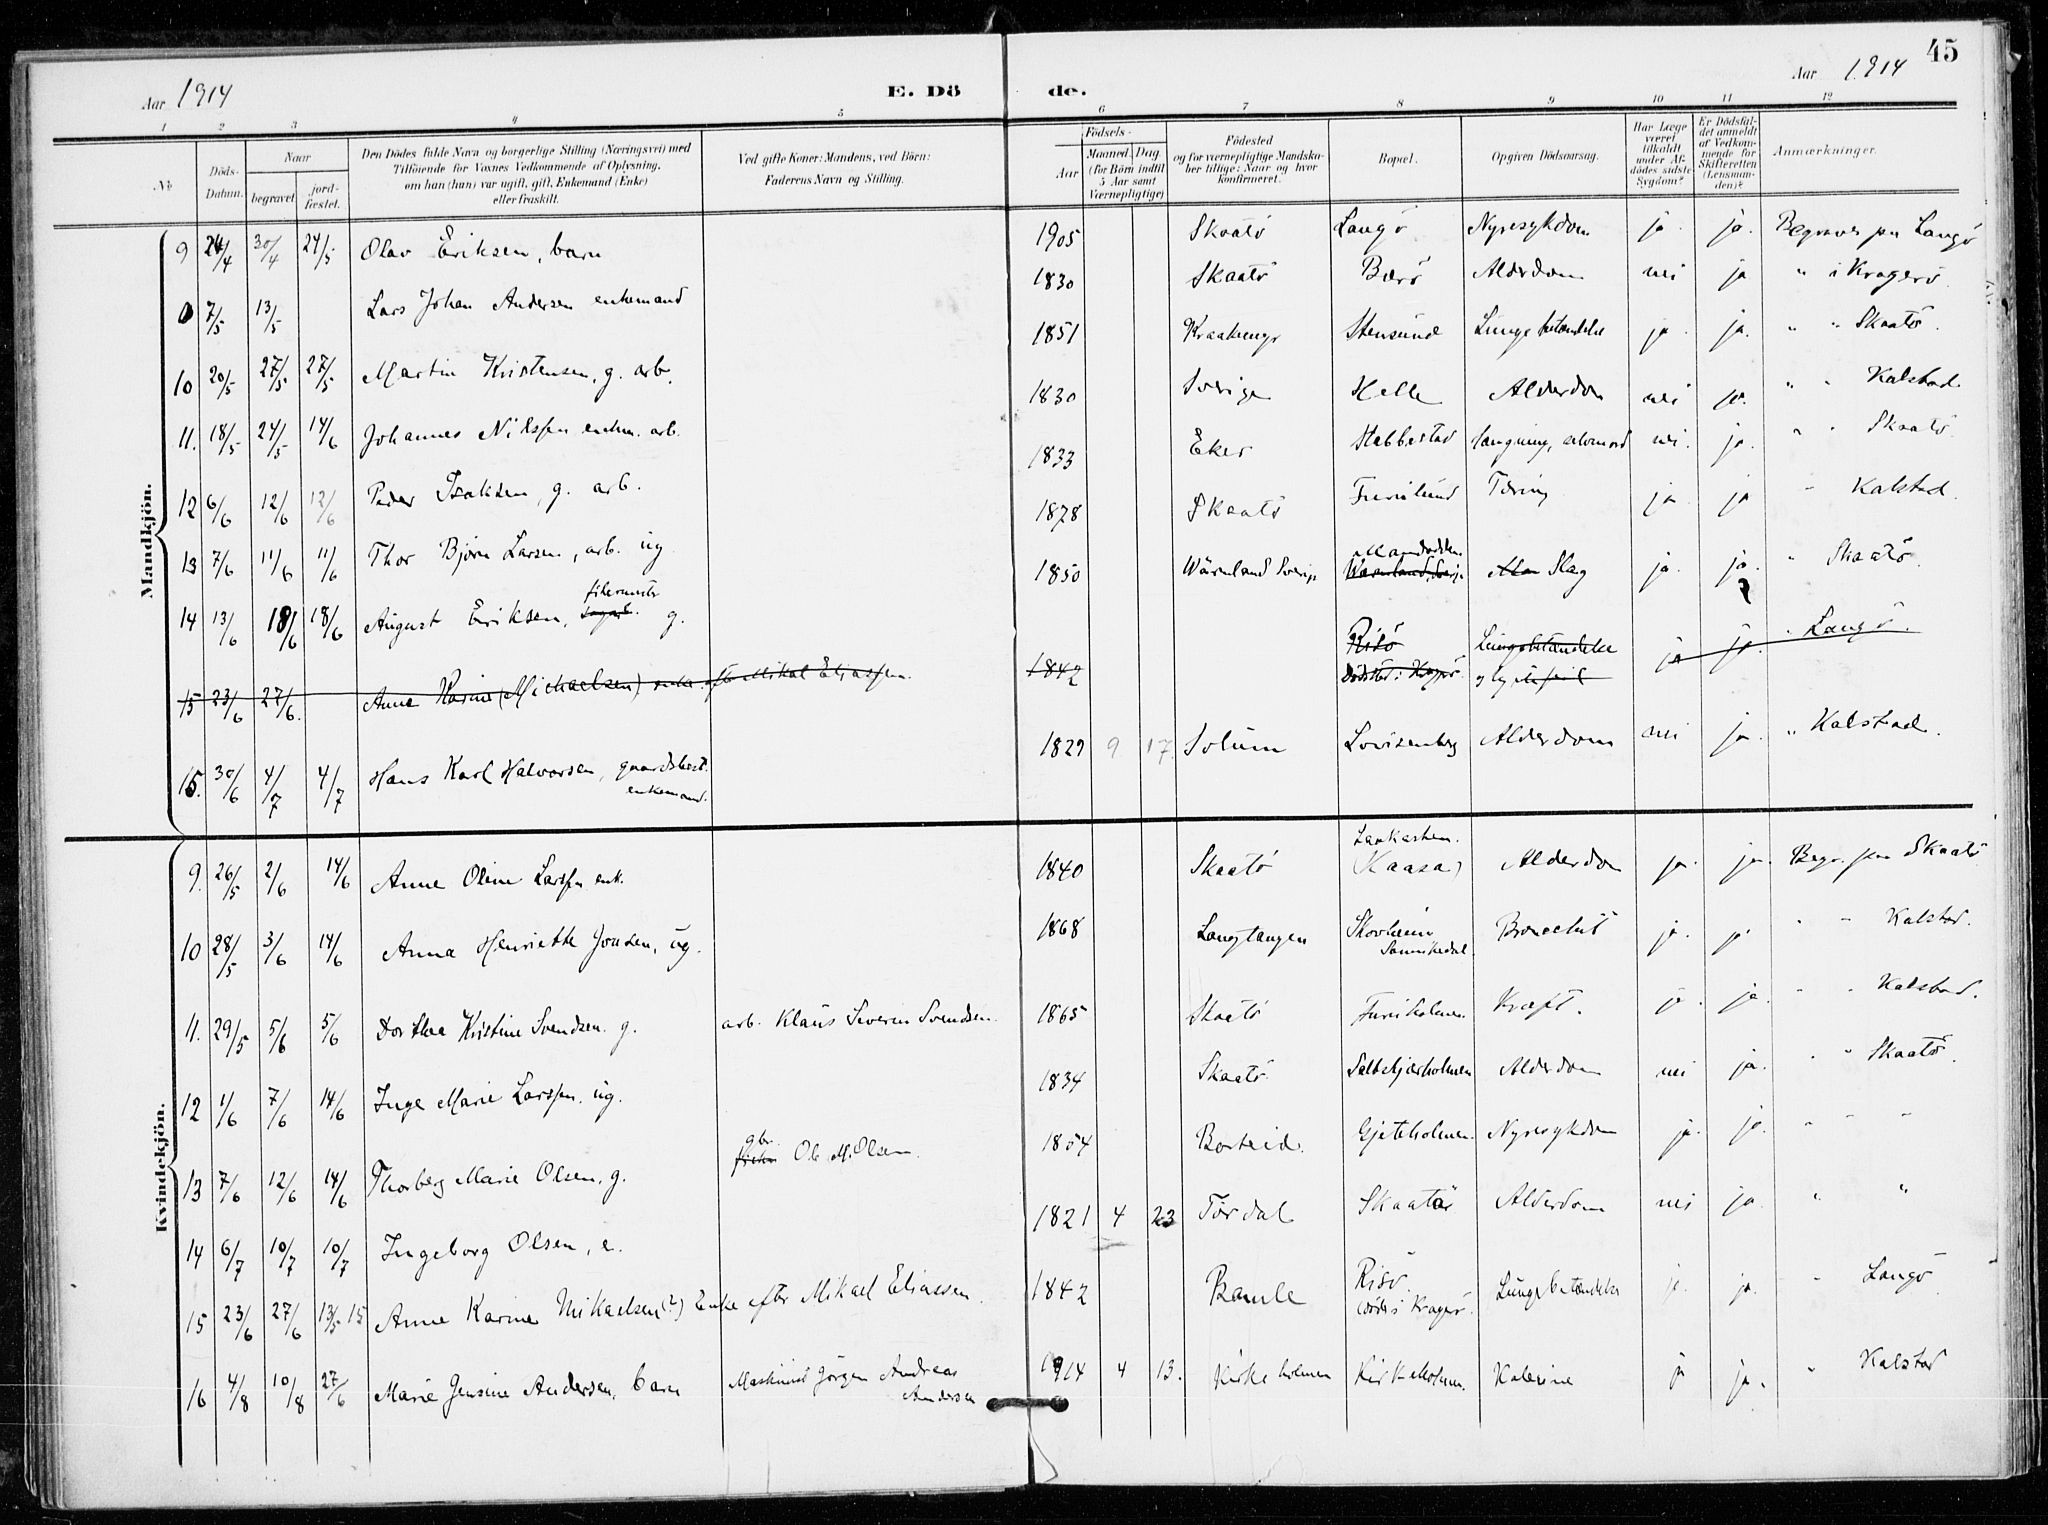 45
Aar 1914
E. Dö
de.
Aar 1914
1 2 3 4 5 6 7 8 9 10 11 12
No
Döds-Datum.
Naar
begravet.
jord-fæstet.
Den Dödes fulde Navn og borgerlige Stilling (Næringsvei) med
Tilföiende for Voxnes Vedkommende af Oplysning,
om han (hun) var ugift, gift, Enkemand (Enke)
eller fraskilt.
Ved gifte Koner: Mandens, ved Börn:
Faderens Navn og Stilling.
Födsels-
Aar
Maaned. Dag.
(for Börn indtil
5 Aar samt
Værnepligtige)
Födested
og for værnepligtige Mandska-
ber tillige: Naar og hvor
konfirmeret.
Bopæl.
Opgiven Dödsaarsag.
Har Læge
været
tilkaldt
under Af-
dödes sidste
Sygdom?
Er Dödsfal-
det anmeldt
af Vedkom-
mende for
Skifteretten
(Lensman-
den)?
Anmærkninger.
Mandkjön.
9 24/4 30/4 24/5 Olav Eriksen, barn 1905 Skaatö Langö Nyresykdom ja ja. Begraves paa Langö
7/5 13/5 Lars Johan Andersen enkemand 1830 Skaatö Bærö Alderdom nei ja " i Kragerö.
10 20/5 27/5 27/5 Martin Kristensen, g. arb. 1851 Stensund Lungebetændelse ja. ja. " " Skaatö.
11. 18/5 24/5 14/6 Johannes Nilssen enkem. arb. 1830 Sverige Helle Alderdom nei ja. " " Kalstad
12 6/6 12/6 12/6 Peder Isaksen, g. arb. 1833 Eker Stabbestad hængning, selvmord nei. ja. " " Skaatö
13 7/6 11/6 11/6 Thor Bjørn Larsen, arb. ug. 1878 Skaatö Furulund Tæring ja ja " Kalstad.
14 13/6 18/6 18/6 August Eriksen, g. 1850 Wärmland Sverige Slag ja. ja. " Skaatö.
15 23/6 27/6. Anne Karine (Michaelsen) enke efter Mikal Eliassen. 1842 Risö Lungebetændelse ja ja. " Langö.
15. 30/6 4/7 4/7 Hans Karl Halvorsen, gaardsbest.
enkemand.
1829 9 17. Solum Lovisenberg Alderdom nei ja. " Kalstad.
Kvindekjön.
9. 26/5 2/6 14/6 Anne Oline Larssen enk. 1840 Skaatö (Kaasa) Alderdom ja. ja. Begr. paa Skaatö
10 28/5 3/6 14/6 Anna Henriette Jonsen, ug. 1868 Langtangen Skovheim
Sannikedal.
Bronchit ja. ja " " Kalstad.
11. 29/5 5/6 5/6 Dorthea Kristine Svendsen. g. arb. Klaus Severin Svendsen. 1865 Skaatö Furuholmen Kræft. ja. ja. " " Kalstad.
12 1/6 7/6 14/6 Inge Marie Larssen. ug. 1834 Skaatö. Saltskjærholmen Alderdom nei ja. " " Skaatö.
13 7/6 12/6 14/6 Thorberg Marie Olsen, g. gbr. Ole M. Olsen. 1854 Borteid. Gjeteholmen. Nyresykdom ja. ja. " " "
14 6/7 10/7 10/7 Ingeborg Olsen, e. 1821 4 23 Tördal Skaatö Alderdom nei ja. " "
15 23/6 27/6 13/5 15 Anne Karine Mikaelsen (?) Enke efter Mikael Eliassen. 1842 Bamle Risö
(döde i Kragerö.
Lungebetændelse ja. ja. " Langö
16 4/8 10/8 27/6 Marie Jensine Andersen. barn Maskinist Jörgen Andreas
Andersen
1914 4 13. Kirkeholmen Kirkeholmen. Kolerine ja ja. " Kalstad